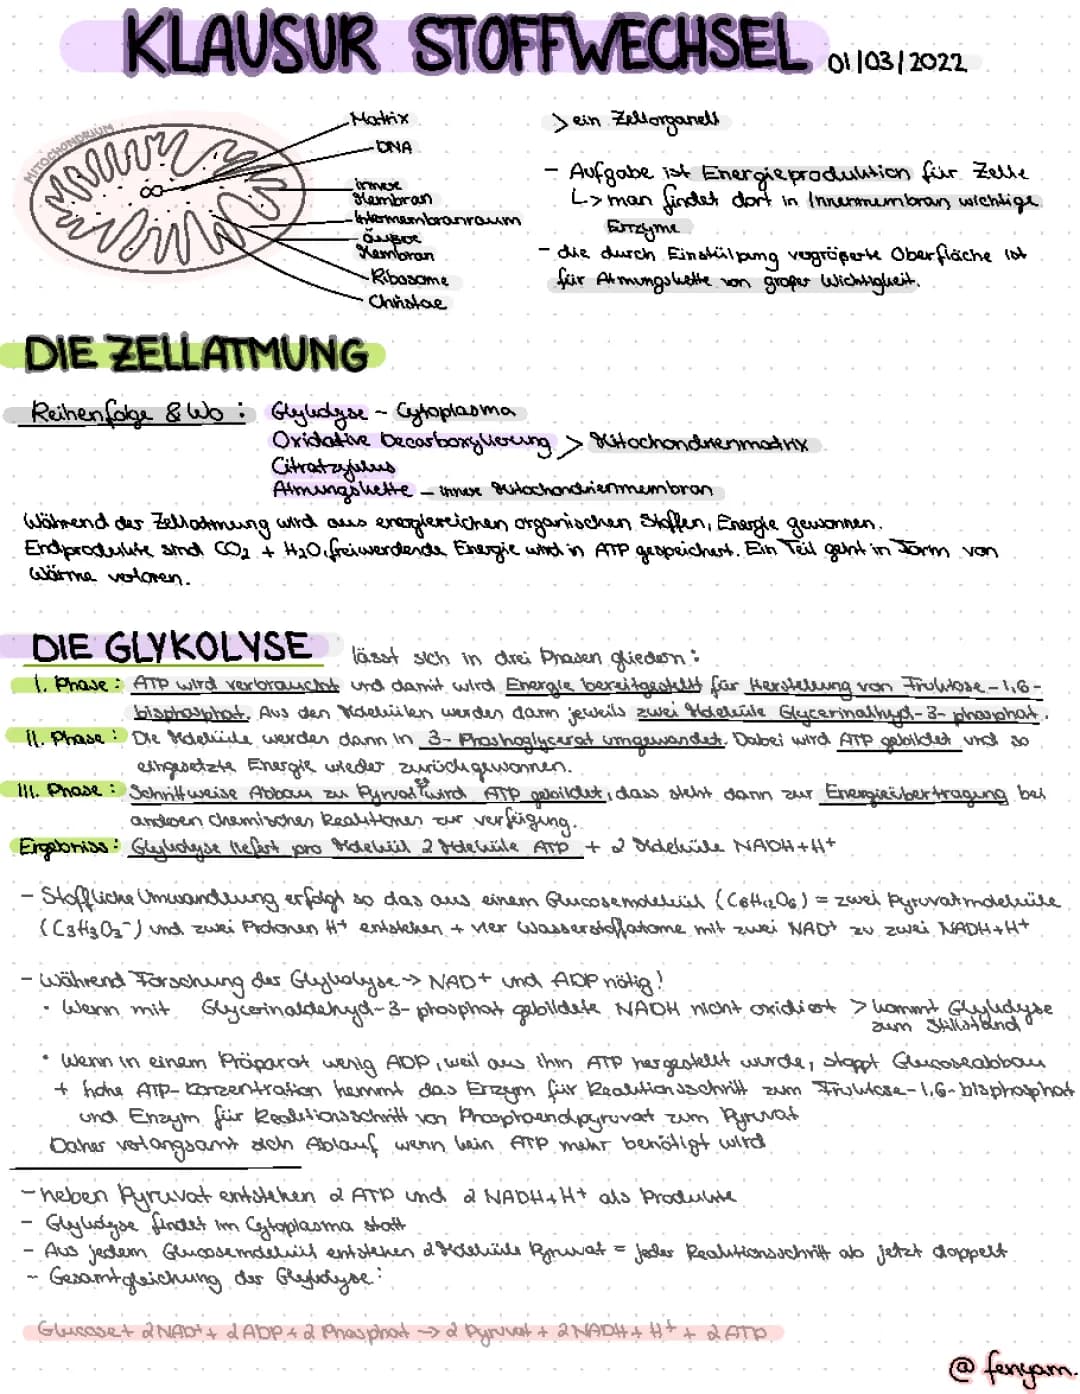 KLAUSUR STOFFWECHSEL 01/03/2022
MITOCHONDRIUM
Matrix
DNA
innere
Membran
Intermembranraum
äußere
Membran
Ribosome
Christae
> ein Zellorganell
- Aufgabe ist Energieproduktion für Zelle
↳> man findet dort in Innenmembran wichtige
Enzyme
- die durch Einstülpung vergrößerte Oberfläche ist
für Atmungskette von großer Wichtigkeit.
DIE ZELLATMUNG
Reihenfolge & Wo : Glykolyse - Cytoplasma
Oxidative Decarboxylierung > Mitochondrienmatrix
Citratzyklus
Atmungskette - innere Mitochondrienmembran
Während der Zellatmung wird aus energiereichen organischen Stoffen, Energie gewonnen.
Endprodukte sind CO2 + H2O, freiwerdende Energie wird in ATP gespeichert. Ein Teil geht in Form von
Wärme verloren.
DIE GLYKOLYSE lässt sich in drei Phasen gliedern :
I. Phase : ATP wird verbraucht und damit wird Energie bereitgestellt für Herstellung von Fruktose-1,6-
bisphosphat. Aus den Molekülen werden dann jeweils zwei Moleküle Glycerinalhyd-3-phosphat.
II. Phase : Die Moleküle werden dann in 3-Phoshoglycerat umgewandet. Dabei wird ATP gebildet und so
eingesetzte Energie wieder zurückgewonnen.
III. Phase : Schrittweise Abbau zu Pyruvat wird ATP gebildet, dass steht dann zur Energieübertragung bei
anderen chemischen Reaktionen zur verfügung.
Ergebniss : Glykolyse liefert pro Molekül 2 Moleküle ATP + 2 Moleküle NADH+H+
- Stoffliche Umwandlung erfolgt so das aus einem Glucosemolekül (C6H12O6) = zwei Pyruvatmoleküle
(C3H3O3-) und zwei Protonen H+ entstehen + vier Wasserstoffatome mit zwei NAD+ zu zwei NADH+H+
- Während Forschung der Glykolyse -> NAD+ und ADP nötig!
• Wenn mit Glycerinaldehyd-3-phosphat gebildete NADH nicht oxidiert > kommt Glykolyse
zum Stillstand
• Wenn in einem Präparat wenig ADP, weil aus ihm ATP hergestellt wurde, stoppt Glucoseabbau
+ hohe ATP-Konzentration hemmt das Enzym für Reaktionsschritt zum Fruktose-1,6-bisphosphat
und Enzym für Reaktionsschritt von Phosphoendpyruvat zum Pyruvat
Daher verlangsamt sich Ablauf wenn kein ATP mehr benötigt wird
- neben Pyruvat entstehen 2 ATP und 2 NADH+H+ als Produkte
- Glykolyse findet im Cytoplasma statt
- Aus jedem Glucosemolekül entstehen 2 Moleküle Pyruvat = jeder Reaktionsschritt ab jetzt doppelt
- Gesamtgleichung der Glykolyse :
Glucose + 2 NAD+ + 2 ADP + 2 Phosphat -> 2 Pyruvat + 2 NADH + H+ + 2 ATP
@ fenyam.